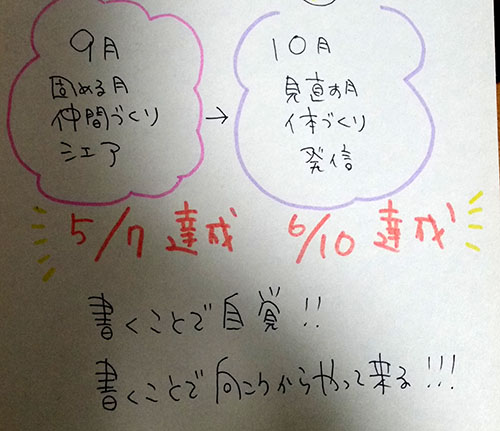 9月
固める月
仲間づくり
シェア
→
10月
見直す月
体づくり
発信
5/7達成
6/10達成
書くことで自覚!!
書くことで向こうからやって来る!!!